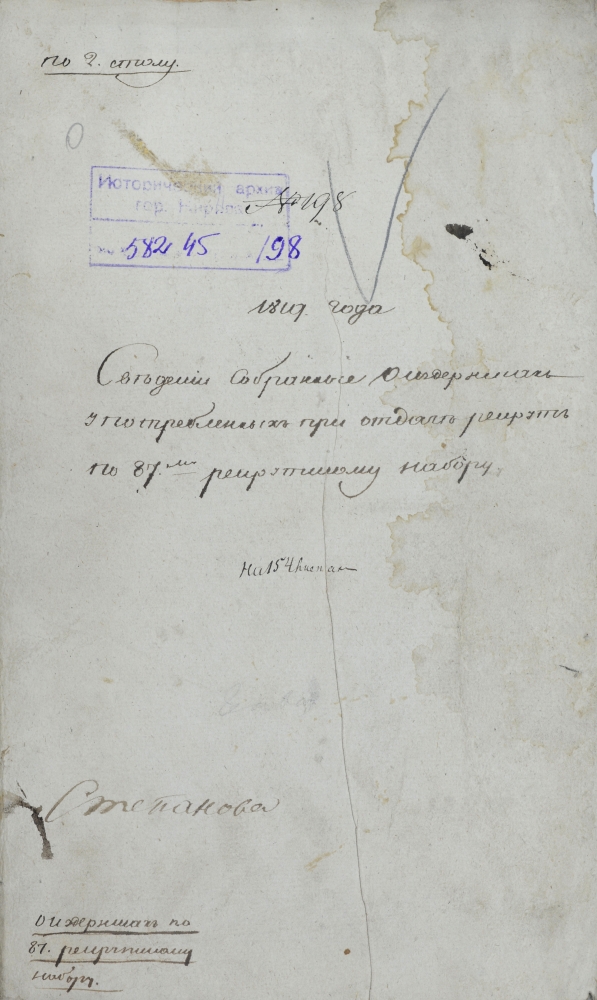 по 2. столу.
Исторический архив
гор. Кир
№ 198
582 45 198
1819. года
Сведении Собранные О издержкахъ
употребленныхъ при отдаче рекрутъ
по 87.му рекрутскому набору
На 154 листах
Степанова
О издержкахъ по
87. рекрутскому
набору.